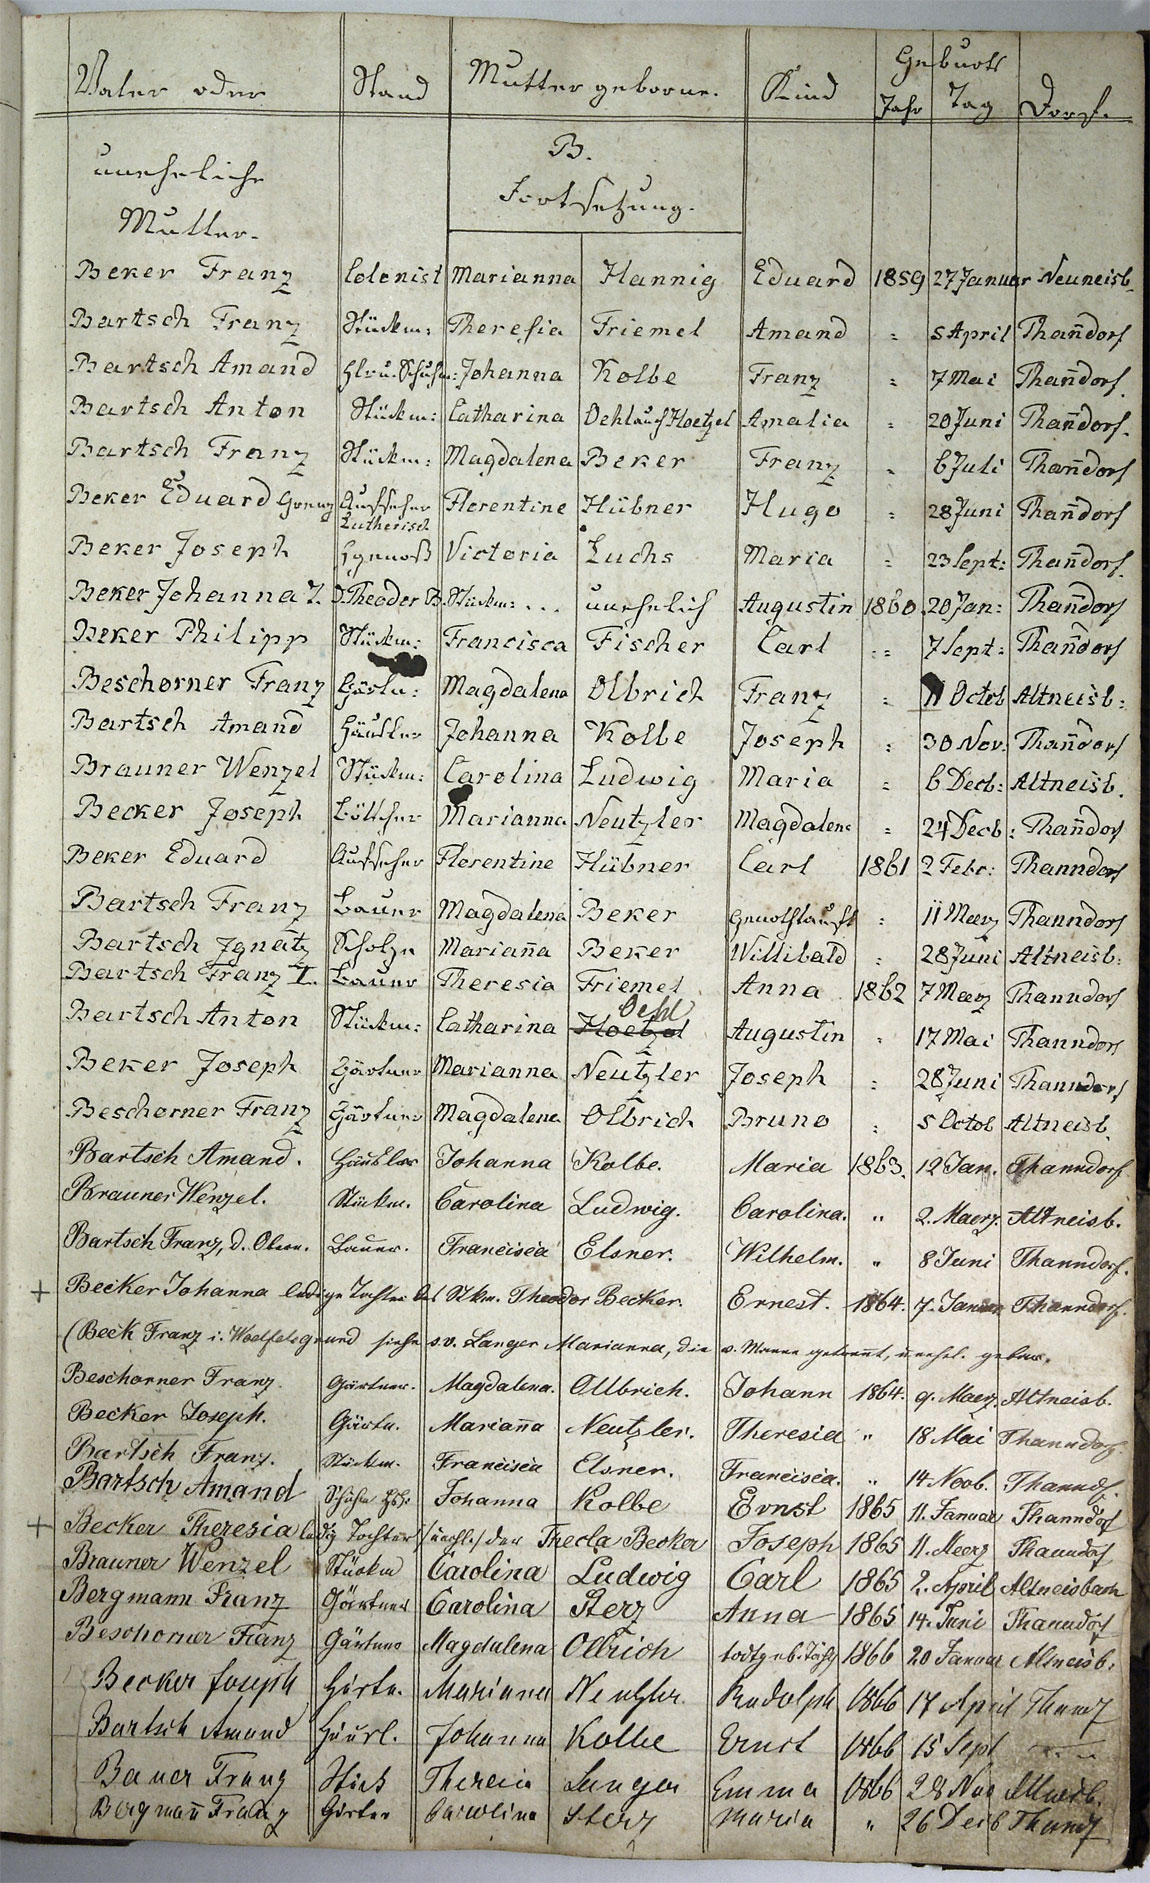 Vater oder Stand Mutter geborne. Kind Geburts Jahr Tag Dorf.
uneheliche B.
Mutter. Fortsetzung.
Beker Franz Colonist Marianna Hannig Eduard 1859 27 Januar Neuneisb.
Bartsch Franz Stückm: Theresia Friemel Amand " 5 April Than̄dorf
Bartsch Amand Johanna Kolbe Franz " 7 Mai Than̄dorf.
Bartsch Anton Stückm: Catharina Oehl auch Hoetzel Amalia " 20 Juni Than̄dorf.
Bartsch Franz Stückm: Magdalena Beker Franz " 6 Juli Than̄dorf
Beker Eduard Grenz Aufseher Lutherisch Florentine Hübner Hugo " 28 Juni Than̄dorf
Beker Joseph Victoria Luchs Maria " 23 Sept: Than̄dorf.
Beker Johanna T. D. Theodor B. Stückm: ... unehelich Augustin 1860 20 Jan: Than̄dorf
Beker Philipp Stückm: Francisca Fischer Carl " 7 Sept: Than̄dorf
Beschorner Franz Gärtn: Magdalena Olbrich Franz " 11 Octob Altneisb:
Bartsch Amand Häusler Johanna Kolbe Joseph " 30 Nov: Than̄dorf
Brauner Wenzel Stückm: Carolina Ludwig Maria " 6 Decb: Altneisb.
Becker Joseph Böttcher Marianna Neutzler Magdalena " 24 Decb: Than̄dorf
Beker Eduard Aufseher Florentine Hübner Carl 1861 2 Febr: Thanndorf
Bartsch Franz Bauer Magdalena Beker Genothtauft " 11 Maerz Thanndorf
Bartsch Ignatz Scholze Marian̄a Beker Willibald " 28 Juni Altneisb:
Bartsch Franz I. Bauer Theresia Friemel Anna 1862 7 Maerz Thanndorf
Bartsch Anton Stückm: Catharina Hoetzel Oehl Augustin " 17 Mai Thanndorf
Beker Joseph Gärtner Marianna Neutzler Joseph " 28 Juni Thanndorf
Beschorner Franz Gärtner Magdalena Olbrich Bruno " 5 Octob Altneisb.
Bartsch Amand. Häusler Johanna Kolbe. Maria 1863. 12 Jan. Thanndorf
Brauner Wenzel. Stückm. Carolina Ludwig. Carolina. " 2. Maerz. Altneisb.
Bartsch Franz, d. Obere. Bauer. Francisca Elsner. Wilhelm. " 8 Juni Thanndorf.
+ Becker Johanna ledige Tochter des Stkm. Theodor Becker. Ernest. 1864. 7. Januar Thanndorf.
(Beck Franz i. Woelfelsgrund siehe s.v. Langer Marianna, die v. Manne getrennt, unehel. gebar.
Beschorner Franz. Gärtner. Magdalena. Ollbrich. Johann 1864. 9. Maerz. Altneisb.
Becker Joseph. Gärtn. Marian̄a Neutzler. Theresia " 18 Mai Thanndorf.
Bartsch Franz. Stückm. Francisca Elsner. Francisca. " 14. Novb. Thanndf.
Bartsch Amand Johanna Kolbe Ernst 1865 11. Januar Thanndorf
+ Becker Theresia ledig Tochter (unehl.) der Thecla Becker Joseph 1865 11. Maerz Thanndorf
Brauner Wenzel Stückm Carolina Ludwig Carl 1865 2. April Altneisbach
Bergmann Franz Gärtner Carolina Sterz Anna 1865 14. Juni Thanndorf
Beschorner Franz Gärtner Magdalena Olbrich 1866 20 Januar Altneisb:
Becker Joseph Gärtn. Mariana Neutzler Rudolph 1866 17 April Thandf
Bartsch Amand Häusl. Johanna Kolbe Ernst 1866 15 Sept " "
Bauer Franz Stück Theresia Langer Emma 1866 28 Nov Altneisb.
Bergman̄ Franz Gärtner Carolina Sterz Maria " 26 Decb Thandf